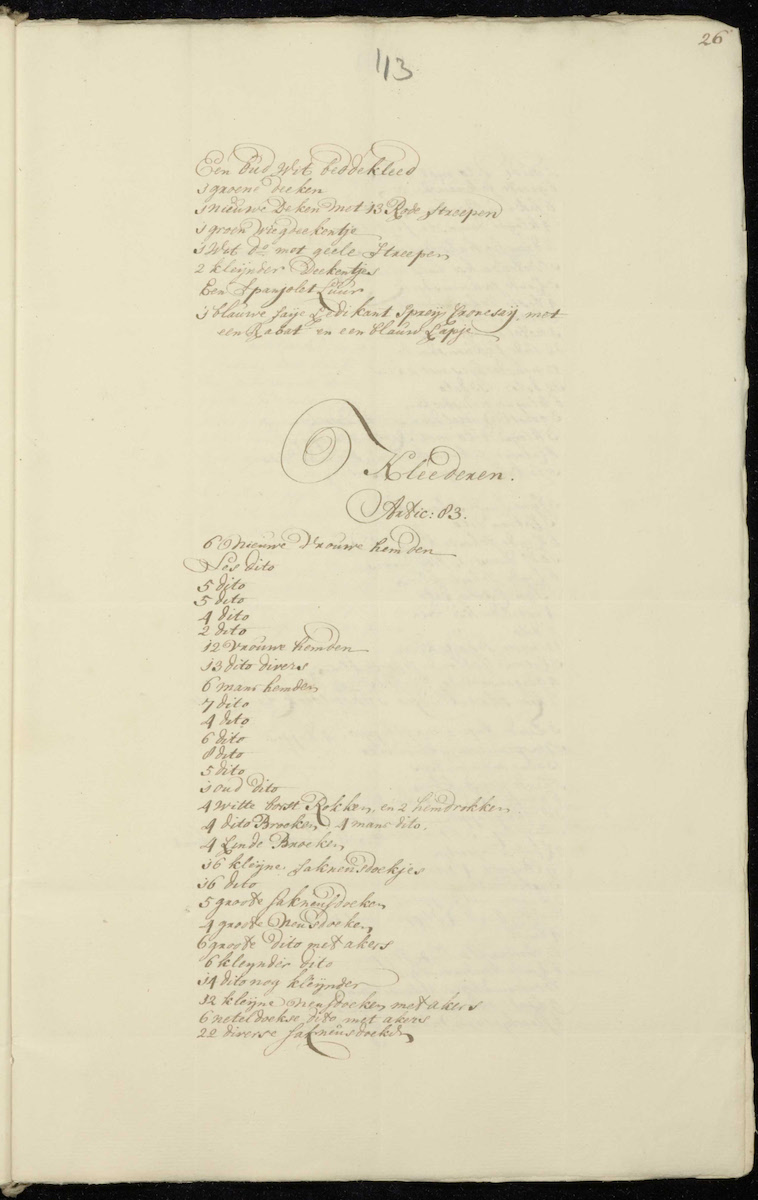 26
113
Een oud wit beddekleed
1 groene deeken
1 nieuwe deken met 13 Rode streepen
1 groen wiegdeekentje
1 Wit do met geele Streepen
2 kleijnder deekentjes
Een Spanjolet Luur
1 blauwe saije Ledikant Spreij met
een Rabat en een blauw Lapje
Kleederen.
Artic: 83.
6 Nieuwe Vrouwe hemden
Ses dito
5 dito
5 dito
4 dito
2 dito
12 Vrouwe hemden
13 dito divers
6 mans hemden
7 dito
4 dito
6 dito
8 dito
5 dito
1 oud dito
4 witte borst Rokken, en 2 hemdrokken
4 dito Broeken 4 mans dito.
4 Linde Broeken
16 kleijne sakneusdoekjes
16 dito
5 groote sakneusdoeken
4 groote Neusdoeken
6 groote dito met akers
6 kleijnder dito
14 dito nog kleijnder
12 kleijne Neusdoeken met akers
6 neteldoekse dito met akers
22 diverse sakneusdoeken